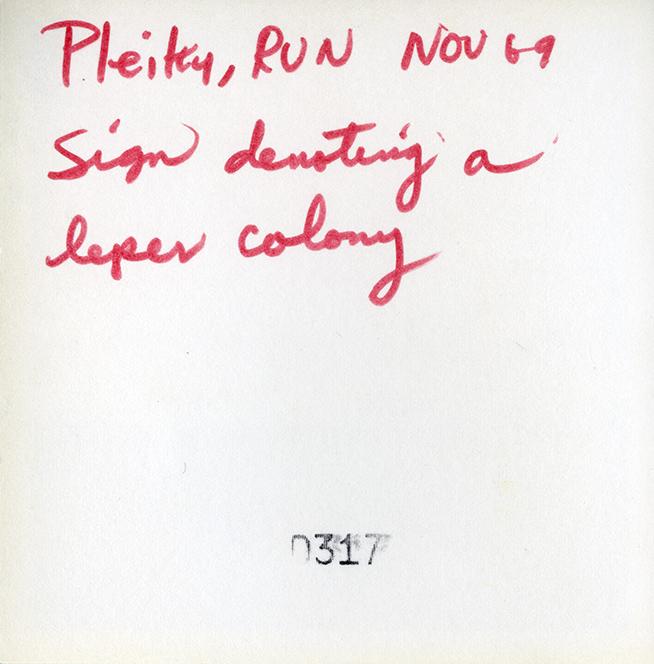 Pleiky, RUN NOV 69
Sign denoting a
leper colony
0317